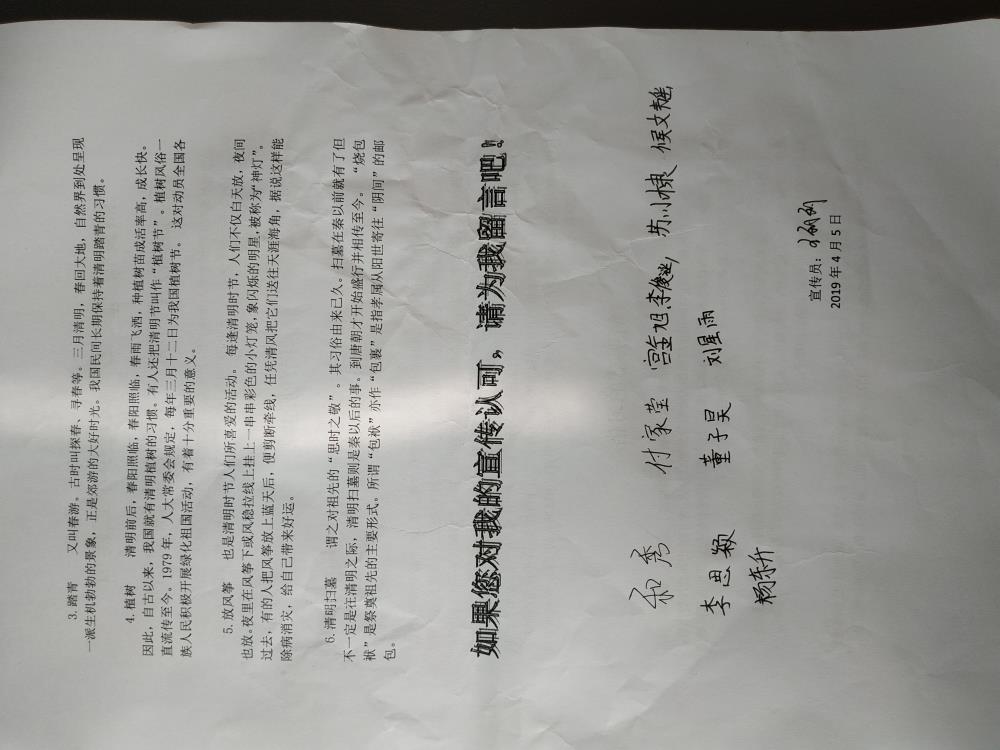 3. 踏青 又叫春游。古时叫探春、寻春等。三月清明，春回大地，自然界到处呈现
一派生机勃勃的景象，正是郊游的大好时光。我国民间长期保持着清明踏青的习惯。
4. 植树 清明前后，春阳照临，春阳照临，春雨飞洒，种植树苗成活率高，成长快。
因此，自古以来，我国就有清明植树的习惯。有人还把清明节叫作“植树节”。植树风俗一
直流传至今。1979 年，人大常委会规定，每年三月十二日为我国植树节。这对动员全国各
族人民积极开展绿化祖国活动，有着十分重要的意义。
5. 放风筝 也是清明时节人们所喜爱的活动。每逢清明时节，人们不仅白天放，夜间
也放。夜里在风筝下或风稳拉线上挂上一串串彩色的小灯笼，象闪烁的明星，被称为“神灯”。
过去，有的人把风筝放上蓝天后，便剪断牵线，任凭清风把它们送往天涯海角，据说这样能
除病消灾，给自己带来好运。
6. 清明扫墓 谓之对祖先的“思时之敬”。其习俗由来已久。扫墓在秦以前就有了但
不一定是在清明之际，清明扫墓则是秦以后的事。到唐朝才开始盛行并相传至今。“烧包
袱”是祭奠祖先的主要形式。所谓“包袱”亦作“包裹”是指孝属从阳世寄往“阴间”的邮
包。
如果您对我的宣传认可，请为我留言吧！
和秀 付家莹 宫金旭 李俊逸 苏小棣 侯文魁
李思颖 董子昊 刘星雨
杨东升
宣传员：
2019 年 4 月 5 日